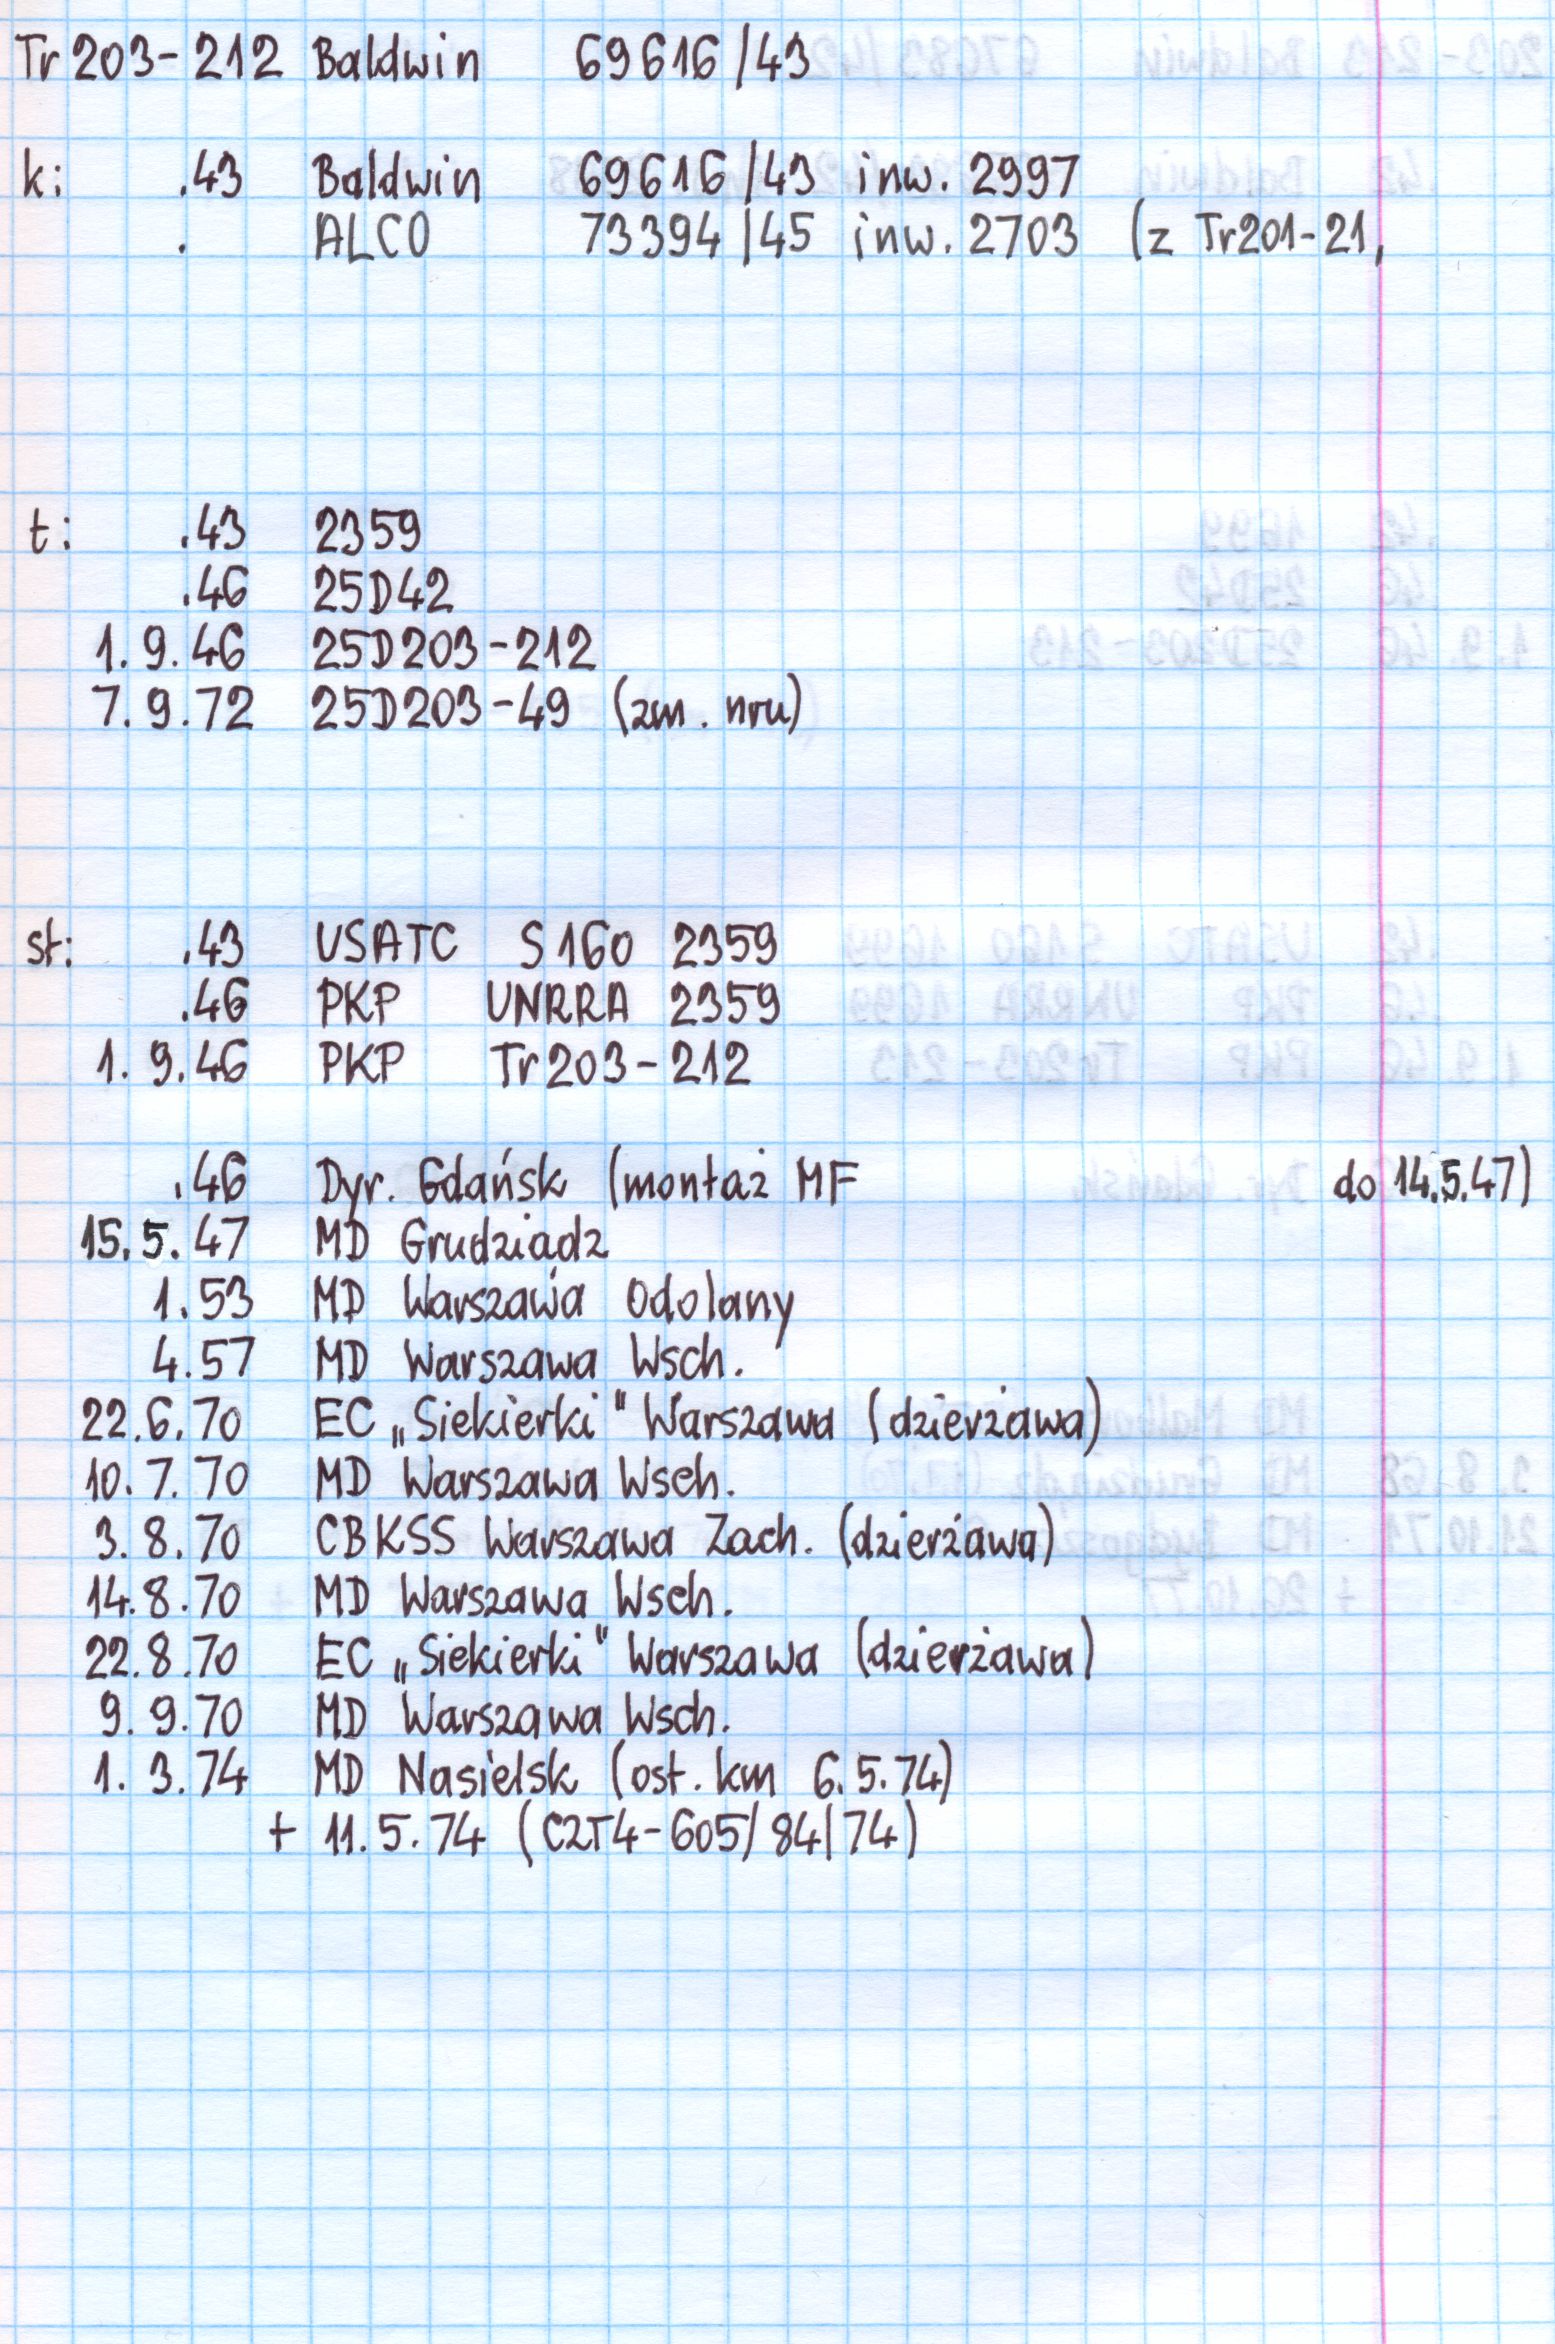 Tr203-212 Baldwin 69616/43
k: .43 Baldwin 69616/43 inw. 2997
. ALCO 73394/45 inw. 2703 (z Tr201-21,
t: .43 2359
.46 25D42
1.9.46 25D203-212
7.9.72 25D203-49 (zm. nru)
st: .43 USATC S160 2359
.46 PKP UNRRA 2359
1.9.46 PKP Tr203-212
.46 Dyr. Gdańsk (montaż MF do 14.5.47)
15.5.47 MD Grudziądz
1.53 MD Warszawa Odolany
4.57 MD Warszawa Wsch.
22.6.70 EC „Siekierki" Warszawa (dzierżawa)
10.7.70 MD Warszawa Wsch.
3.8.70 CBKSS Warszawa Zach. (dzierżawa)
14.8.70 MD Warszawa Wsch.
22.8.70 EC „Siekierki" Warszawa (dzierżawa)
9.9.70 MD Warszawa Wsch.
1.3.74 MD Nasielsk (ost. km 6.5.74)
+ 11.5.74 (C2T4-605/84/74)